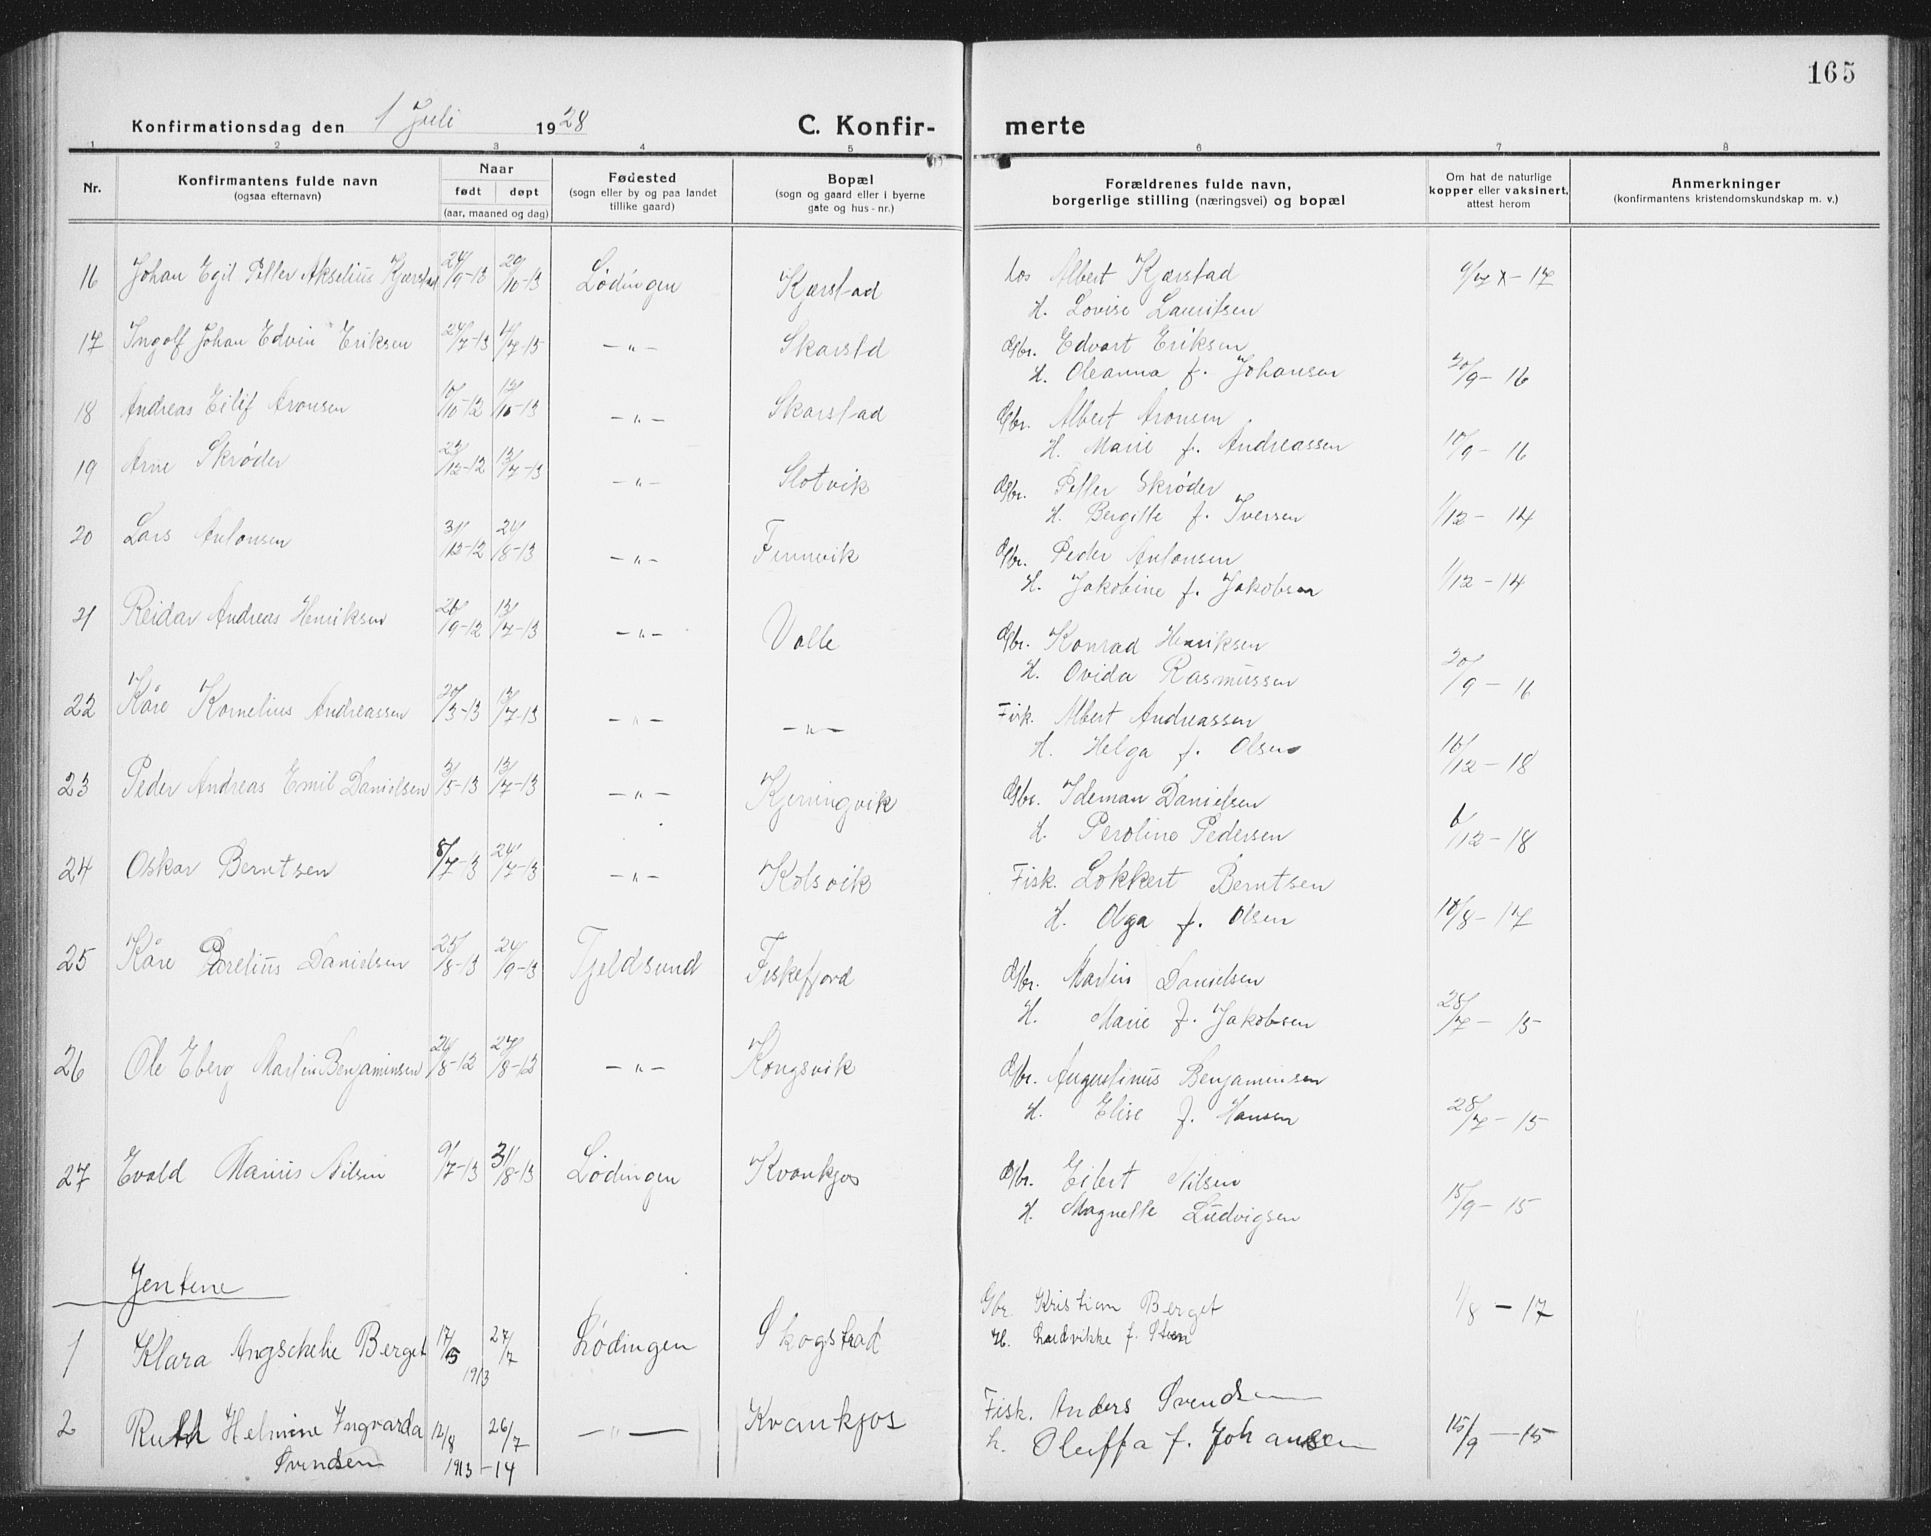 165
Konfirmationsdag den 1 Juli 1928 C. Konfir- merte
1 2 3 4 5 6 7 8
Nr. Konfirmantens fulde navn (ogsaa efternavn) Naar født døpt (aar, maaned og dag) Fødested (sogn eller by og paa landet tillike gaard) Bopæl (sogn og gaard eller i byerne gate og hus-nr.) Forældrenes fulde navn, borgerlige stilling (næringsvei) og bopæl Om hat de naturlige kopper eller vaksinert, attest herom Anmerkninger (konfirmantens kristendomskundskap m. v.)
16 Johan Egil Petter Akselius Kjærstad 24/9-13 20/10-13 Lødingen Kjærstad Albert Kjærstad
H. Lovise Lauritsen
17 Ingolf Johan Edvin Eriksen 24/7-13 -"- Skarstd Gbr. Edvart Eriksen
H. Oleanna f. Johansen 20/9-16
18 Andreas Eilif Aronsen 10/10-12 12/10-13 -"- Skarstad Gbr. Albert Aronsen
H. Marie f. Andreassen 10/9-16
19 Arne Skrøder 25/12-12 13/7-13 -"- Slotvik Gbr. Petter Skrøder
H. Bergitte f. Iversen 1/12-14
20 Lars Antonsen 31/12-12 24/8-13 -"- Finnvik Gbr. Peder Antonsen
H. Jakobine f. Jakobsen 1/12-14
21 Reidar Andreas Henriksen 26/9-12 13/7-13 -"- Valle Gbr. Konrad Henriksen
H. Ovida Rasmussen 20/9-16
22 Kåre Kornelius Andreassen 20/3-13 13/7-13 -"- -"- Fisk. Albert Andreassen
H. Helga f. Olsen 16/12-18
23 Peder Andreas Emil Danielsen 3/5-13 13/7-13 -"- Kjeringvik Gbr. Ideman Danielsen
H. Peroline Pedersen 6/12-18
24 Oskar Berntsen 8/7-13 24/7-13 -"- Kolsvik Fisk. Lokkert Berntsen
H. Olga f. Olsen 18/8-17
25 Kåre Parelius Danielsen 25/8-13 24/9-13 Tjeldsund Fiskefjord Gbr. Martin Danielsen
H. Marie f. Jakobsen 28/7-15
26 Ole Eberg Martin Benjaminsen 26/8-12 27/8-12 -"- Kongsvik Gbr. Augustinus Benjaminsen
H. Elise f. Hansen 28/7-15
27 Evald Marius Nilsen 9/7-13 31/8-13 Lødingen Kvankjos Gbr. Eilert Nilsen
H. Magnelle Ludvigsen 15/9-15
Jentene
1 Klara Angschelie Berget 17/5 27/7 1913 Lødingen Skogstad Gbr. Kristian Berget 1/8-17
H. Ludvikke f. Steen
2 Ruth Helmine Ingvarda 12/8 26/7 -"- Kvankjos Fisk. Anders Svendsen
Svendsen 1913-14 h. Oluffa f. Johansen 15/9-15